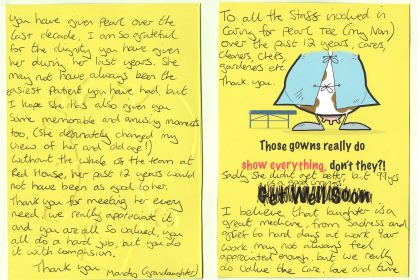 To all the Staff involved in
Caring for Pearl Tee (my Nan)
over the past 12 years, carers,
cleaners, chefs,
gardeners etc.
Thank you.
Those gowns really do
show everything, don't they?!
Sadly she didn't get better but 99yrs
is a good innings
Get Well Soon
I believe that laughter is a
great medicine, from sadness and
grief to hard days at work. Your
work may not always feel
appreciated enough, but we really
do value the care, love and time
you have given Pearl over the
last decade, I am so grateful
for the dignity you have given
her during her last years. She
may not have always been the
easiest patient you have had, but
I hope she has also given you
some memorable and amusing moments
too, (She definately changed my
view of her and old age!)
Without the whole of the team at
Red House, her past 12 years would
not have been as good to her.
Thank you for meeting her every
need, we really appreciate it
and you are all so valued, you
all do a hard job, but you do
it with compassion.
Thank you
Mandy (grandaughter)